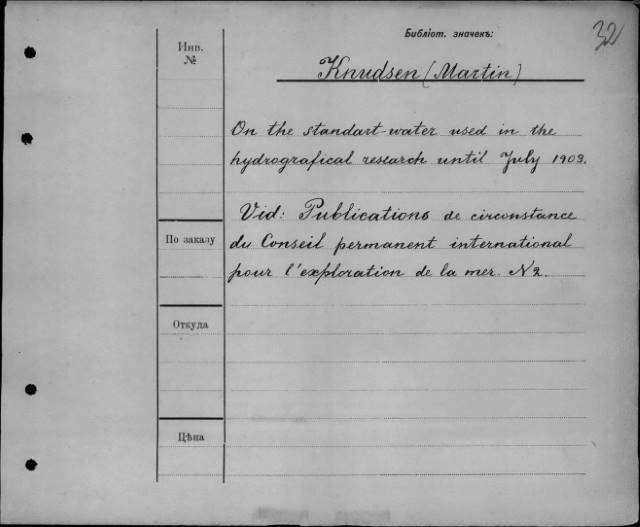 Библіот. значекъ:
32
Инв.
№
Knudsen (Martin)
On the standart-water used in the
hydrografical research until July 1903.
Vid: Publications de circonstance
du Conseil permanent international
pour l'exploration de la mer. N2.
По заказу
Откуда
Цѣна